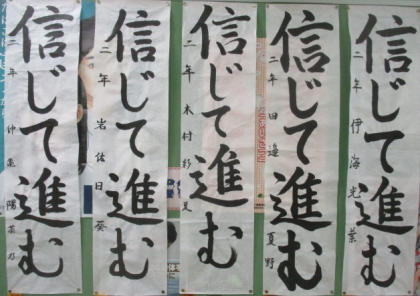 信じて進む
二年 伊海光葉
信じて進む
二年 田邉夏野
信じて進む
二年 木村彩見
信じて進む
二年 岩佐日葵
信じて進む
二年 仲亀陽菜乃